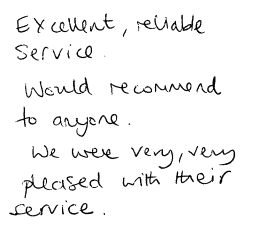 Excellent, reliable
Service.
Would recommend
to anyone.
We were very, very
pleased with their
service.